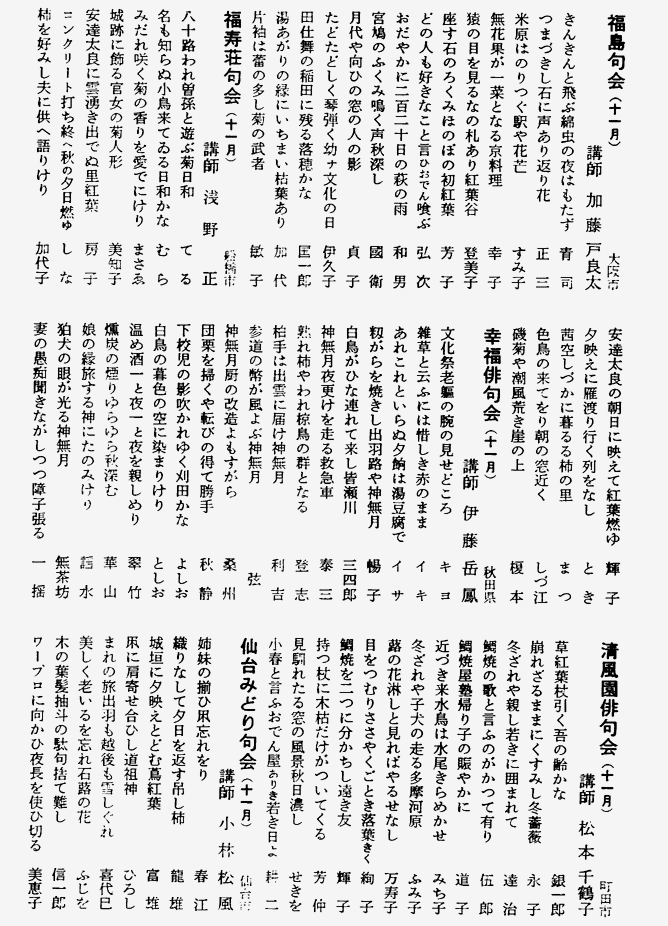 福島句会(十一月)
大阪市
講師 加藤 戸良太
きんきんと飛ぶ綿虫の夜はもたず 青司
つまづきし石に声あり返り花 正三
米原はのりつぐ駅や花芒 すみ子
無花果が一菜となる京料理 幸子
猿の目を見るなの札あり紅葉谷 登美子
座す石のろくみほのぼの初紅葉 芳子
どの人も好きなこと言ひおでん喰ぶ 弘次
おだやかに二百二十日の萩の雨 和男
宮鳩のふくみ鳴く声秋深し 國衛
月代や向ひの窓の人の影 貞子
たどたどしく琴弾く幼ナ文化の日 伊久子
田仕舞の稲田に残る落穂かな 匡一郎
湯あがりの縁にいちまい枯葉あり 加代
片袖は蕾の多し菊の武者 敏子
福寿荘句会(十一月)
船橋市
講師 浅野 正
八十路われ曽孫と遊ぶ菊日和 てる
名も知らぬ小鳥来てゐる日和かな むら
みだれ咲く菊の香りを愛でにけり まさゑ
城跡に飾る官女の菊人形 美知子
安達太良に雲湧き出でぬ里紅葉 房子
コンクリート打ち終へ秋の夕日燃ゆ しな
柿を好みし夫に供へ語りけり 加代子
安達太良の朝日に映えて紅葉燃ゆ 輝子
夕映えに雁渡り行く列をなし とき
茜空しづかに暮るる柿の里 まつ
色鳥の来てをり朝の窓近く しづ江
磯菊や潮風荒き崖の上 榎本
幸福俳句会(十一月)
秋田県
講師 伊藤 岳鳳
文化祭老軀の腕の見せどころ キヨ
雑草と云ふには惜しき赤のまま イキ
あれこれといらぬ夕餉は湯豆腐で イサ
籾がらを焼きし出羽路や神無月 暢子
白鳥がひな連れて来し皆瀬川 三四郎
神無月夜更けを走る救急車 泰三
熟れ柿やわれ椋鳥の群となる 登志
柏手は出雲に届け神無月 利吉
参道の幣が風よぶ神無月 弦
神無月厨の改造よもすがら 桑州
団栗を掃くや転びの得て勝手 秋静
下校児の影吹かれゆく刈田かな よしお
白鳥の暮色の空に染まりけり としお
温め酒一と夜一と夜を親しめり 翠竹
燻炭の煙りゆらゆら秋深む 華山
娘の縁旅する神にたのみけり 謡水
狛犬の眼が光る神無月 無茶坊
妻の愚痴聞きながしつつ障子張る 一揺
清風園俳句会(十一月)
町田市
講師 松本 千鶴子
草紅葉杖引く吾の齢かな 銀一郎
崩れざるままにくすみし冬薔薇 永子
冬ざれや親し若きに囲まれて 達治
鯛焼の歌と言ふのがかつて有り 伍郎
鯛焼屋塾帰り子の賑やかに 道子
近づき来水鳥は水尾きらめかせ みち子
冬ざれや子犬の走る多摩河原 ふみ子
蕗の花淋しと見ればやるせなし 万寿子
目をつむりささやくごとき落葉きく 絢子
鯛焼を二つに分かちし遠き友 輝子
持つ杖に木枯だけがついてくる 芳仲
見馴れたる窓の風景秋日濃し せきを
小春と言ふおでん屋ありき若き日よ 耕二
仙台みどり句会(十一月)
仙台市
講師 小林 松風
姉妹の揃ひ凩忘れをり 春江
織りなして夕日を返す吊し柿 龍雄
城垣に夕映えとどむ蔦紅葉 富雄
凩に肩寄せ合ひし道祖神 ひろし
まれの旅出羽も越後も雪しぐれ 喜代巳
美しく老いるを忘れ石蕗の花 ふじを
木の葉髪抽斗の駄句捨て難し 信一郎
ワープロに向かひ夜長を使ひ切る 美恵子